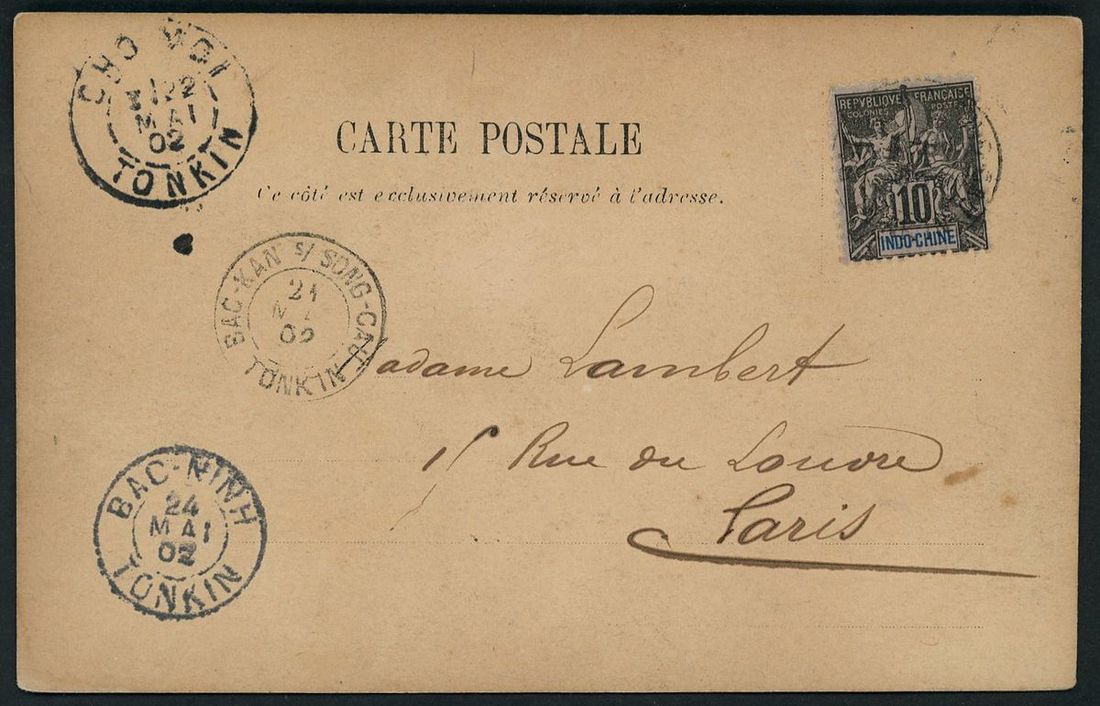 CHO MOI
22
MAI
02
TONKIN
CARTE POSTALE
Ce côté est exclusivement réservé à l'adresse.
REPVBLIQVE FRANÇAISE
COLONIES POSTES
10
INDO-CHINE
BAC-KAN S/ SONG-CAU
21
02
TONKIN
Madame Lambert
15 Rue du Louvre
Paris
BAC-NINH
24
MAI
02
TONKIN